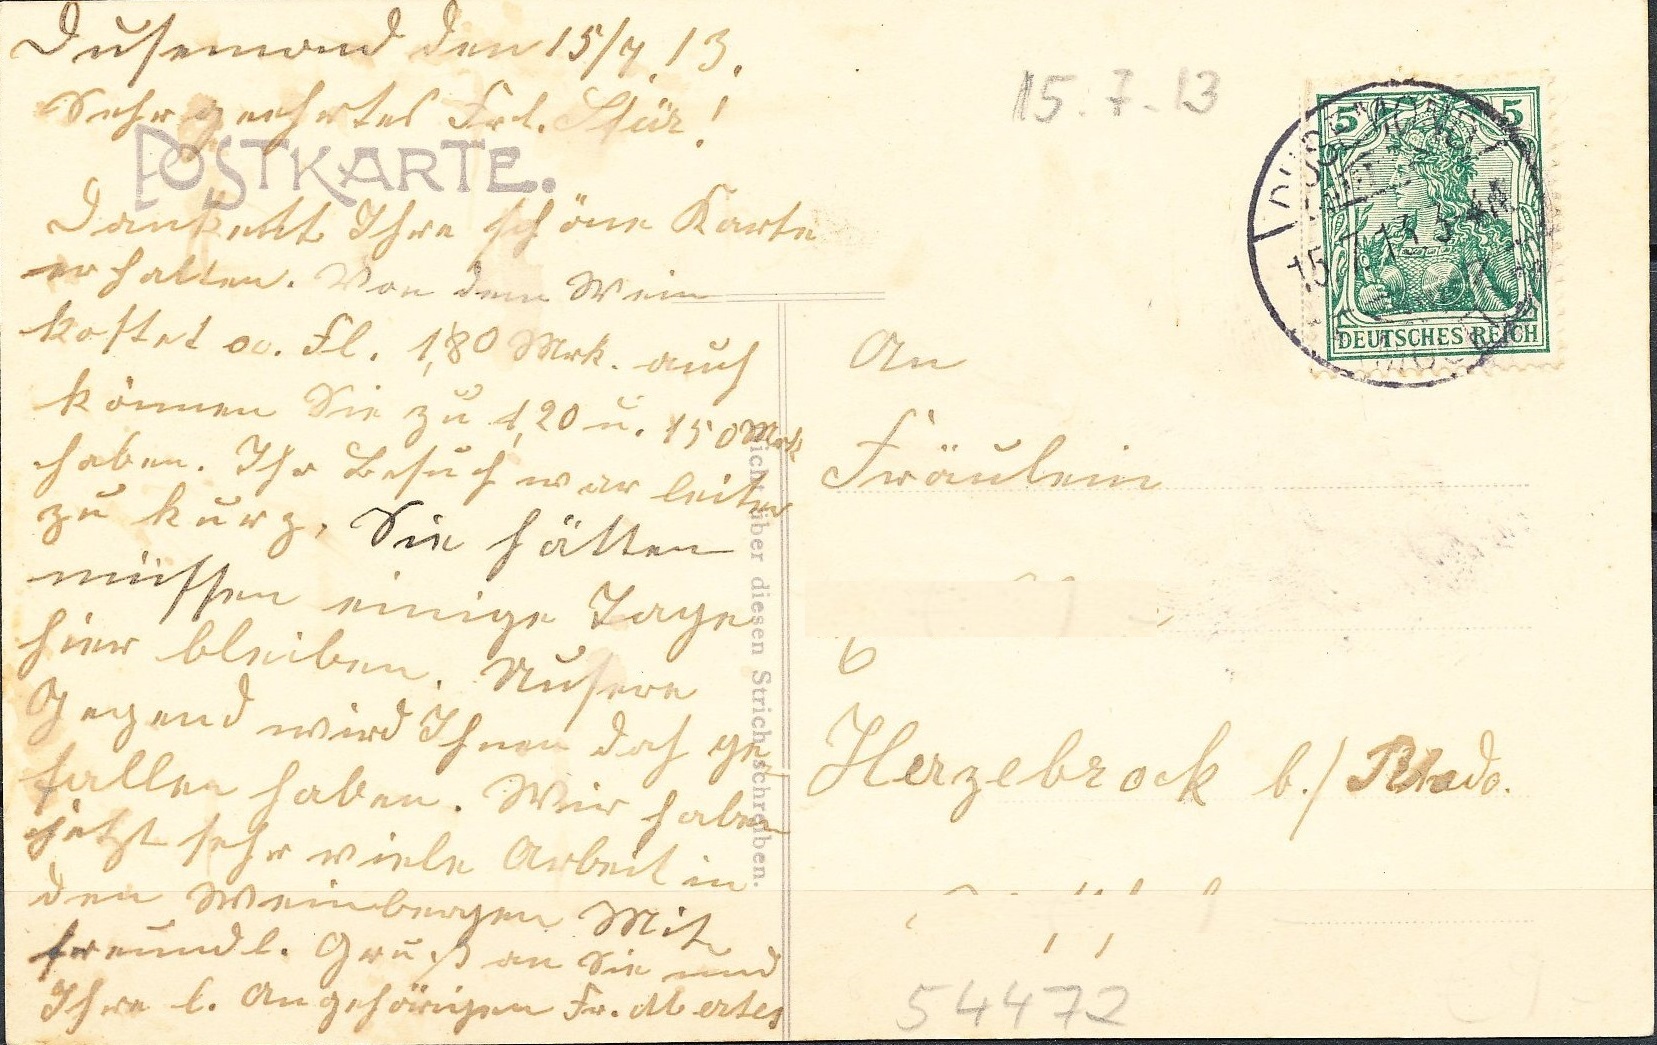 Dusemond den 15/7.13.
Sehr geehrtes Frl.
POSTKARTE.
Dankend Ihre schöne Karte
erhalten. Von dem Wein
kostet Fl. 1,80 Mrk. auch
können Sie zu 1,20 u. 150 Mrk
haben. Ihr Besuch war leider
zu kurz, Sie hätten
müssen einige Tage
hier bleiben. Unsere
Gegend wird Ihnen doch ge
fallen haben. Wir haben
jetzt sehr viele Arbeit in
den Weinbergen Mit
freundl. Gruß an Sie und
Ihre l. Angehörigen Fr.
Nicht über diesen Strich schreiben.
15.7.13
5 5
DEUTSCHES REICH
15.7.13
An
Fräulein
Herzebrock b./
54472